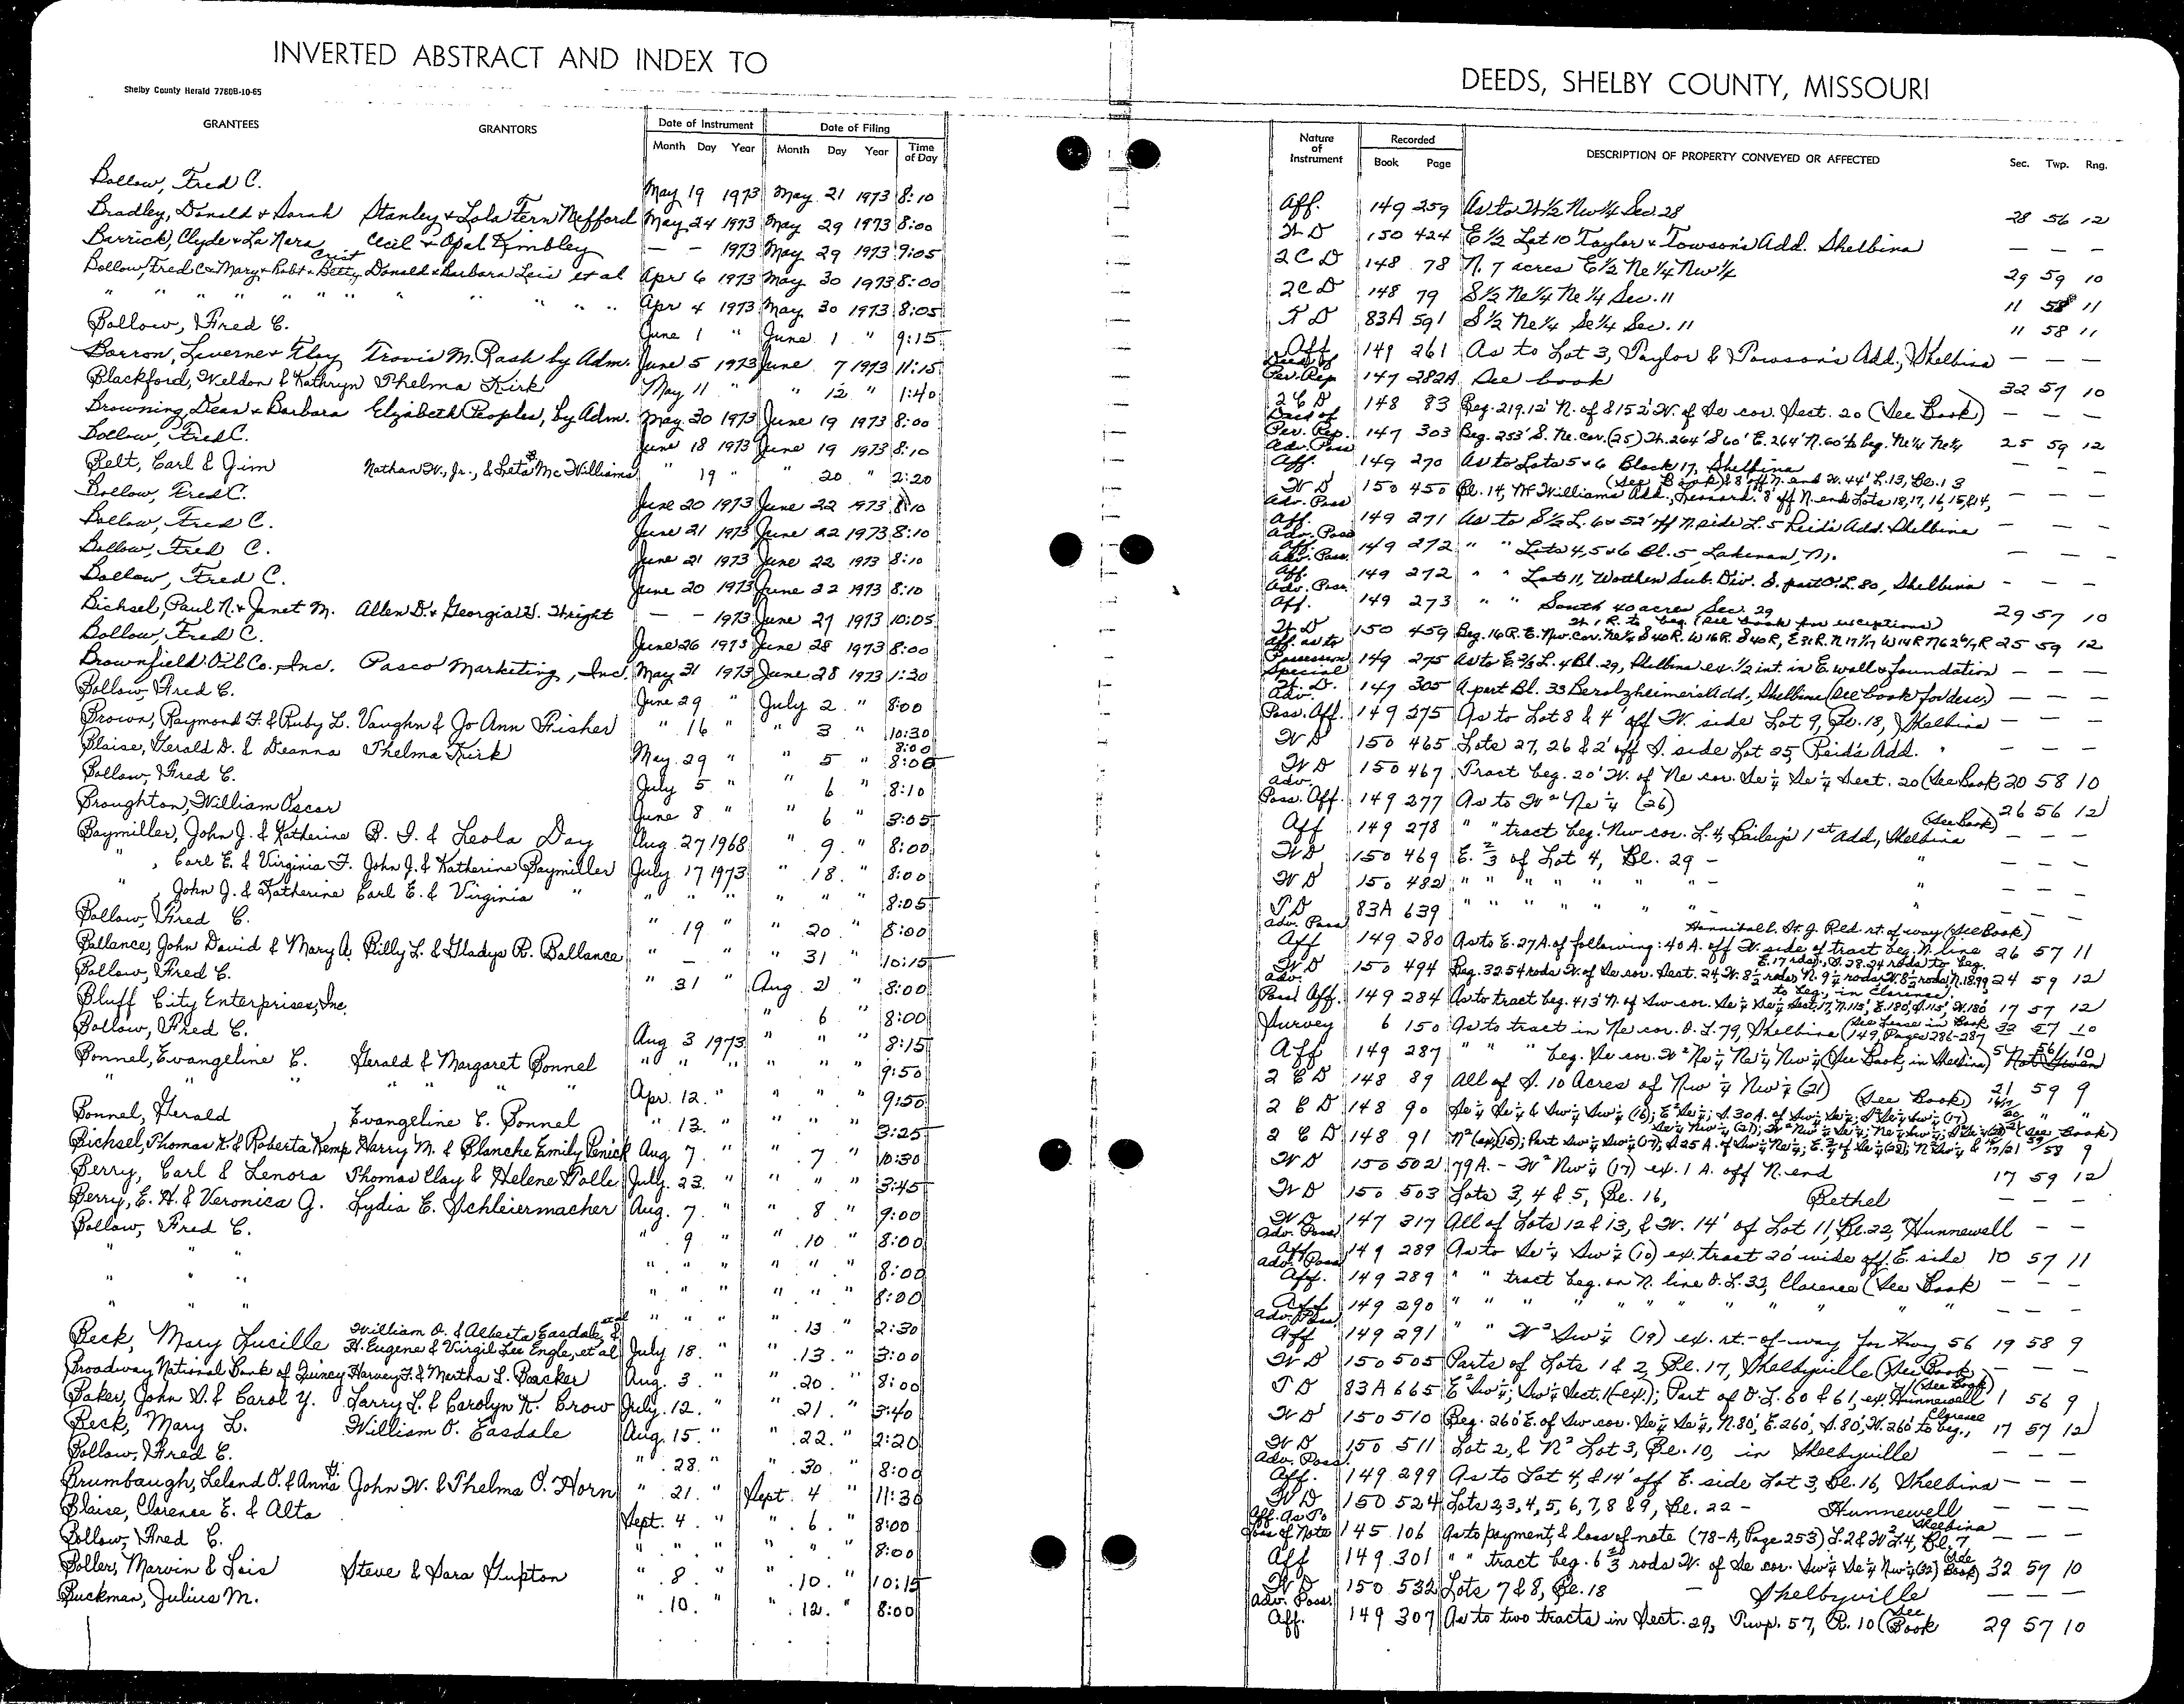 INVERTED ABSTRACT AND INDEX TO
DEEDS, SHELBY COUNTY, MISSOURI
Shelby County Herald 7780B-10-65
GRANTEES GRANTORS Date of Instrument Date of Filing
Month Day Year Month Day Year Time of Day
Nature of Instrument Recorded Book Page DESCRIPTION OF PROPERTY CONVEYED OR AFFECTED Sec. Twp. Rng.
Bollow, Fred C. May 19 1973 May 21 1973 8:10
Bradley, Donald & Sarah Stanley & Lola Fern Mefford May 24 1973 May 29 1973 8:00
Barrick, Clyde & La Nora Cecil & Opal Kimbley — — 1973 May 29 1973 9:05
Bollow, Fred C & Mary & Robt & Betty Crist Donald & Barbara Leis et al Apr 6 1973 May 30 1973 8:00
" " " " " " " " " " " Apr 4 1973 May 30 1973 8:05
Bollow, Fred C. June 1 " June 1 " 9:15
Barron, Laverne & Floy Travis M. Rash by Adm. June 5 1973 June 7 1973 11:15
Blackford, Weldon & Kathryn Thelma Kirk May 11 " " 12 " 1:40
Browning, Dean & Barbara Elizabeth Peoples, by Adm. May 30 1973 June 19 1973 8:00
Bollow, Fred C. June 18 1973 June 19 1973 8:10
Belt, Carl & Jim Nathan W., Jr., & Leta McWilliams " 19 " " 20 " 2:20
Bollow, Fred C. June 20 1973 June 22 1973 8:10
Bollow, Fred C. June 21 1973 June 22 1973 8:10
Bollow, Fred C. June 21 1973 June 22 1973 8:10
Bollow, Fred C. June 20 1973 June 22 1973 8:10
Bichsel, Paul N. & Janet M. Allen D. & Georgia H. Wright — — 1973 June 27 1973 10:05
Bollow, Fred C. June 26 1973 June 28 1973 8:00
Brownfield Oil Co., Inc. Pasco Marketing, Inc. May 31 1973 June 28 1973 1:30
Bollow, Fred C. June 29 " July 2 " 8:00
Brown, Raymond F. & Ruby L. Vaughn & Jo Ann Frisher " 16 " " 3 " 10:30
Blaise, Gerald D. & Deanna Thelma Kirk May 29 " " 5 " 8:00 8:00
Bollow, Fred C. July 5 " " 6 " 8:10
Broughton, William Oscar June 8 " " 6 " 3:05
Baymiller, John J. & Katherine B. I. & Leola Day Aug. 27 1968 " 9. " 8:00
" , Carl E. & Virginia F. John J. & Katherine Baymiller July 17 1973 " 18. " 8:00
" , John J. & Katherine Carl E. & Virginia " " " " " " " 8:05
Bollow, Fred C. " 19 " " 20 " 8:00
Ballance, John David & Mary A. Billy L. & Gladys R. Ballance " — " " 31 " 10:15
Bollow, Fred C. " 31 " Aug. 2 " 8:00
Bluff City Enterprises, Inc. " 6 " 8:00
Bollow, Fred C. Aug 3 1973 " " " 8:15
Bonnel, Evangeline C. Gerald & Margaret Bonnel " " " " " " 9:50
" " " " " " " Apr. 12. " " " " 9:50
Bonnel, Gerald Evangeline C. Bonnel " 13. " " " " 3:25
Bichsel, Thomas K. & Roberta Kemp Harry M. & Blanche Emily Penick Aug 7. " " 7 " 10:30
Berry, Carl & Lenora Thomas Clay & Helene Polle July. 23. " " " " 3:45
Berry, E. H. & Veronica G. Lydia E. Schleiermacher Aug. 7. " " 8 " 9:00
Bollow, Fred C. " 9 " " 10 " 8:00
" " " " " " " " " 8:00
" " " " " " " " " 8:00
" " " " " " " 13 " 2:30
Beck, Mary Lucille William O. & Alberta Easdale, & et al
H. Eugene & Virgil Lee Engle, et al July 18. " " 13. " 3:00
Broadway National Bank of Quincy Harvey F. & Martha L. Backer Aug. 3. " " 20. " 8:00
Baker, John D. & Carol Y. Larry L. & Carolyn K. Crow July. 12. " " 21. " 3:40
Beck, Mary L. William O. Easdale Aug. 15. " " 22. " 2:20
Bollow, Fred C. " 28. " " 30. " 8:00
Brumbaugh, Leland O. & Anna G. John W. & Thelma O. Horn " 21. " Sept. 4 " 11:30
Blaise, Clarence E. & Alta Sept. 4. " " 6. " 8:00
Bollow, Fred C. " " " " " " 8:00
Boller, Marvin & Lois Steve & Sara Gupton " 8. " " 10. " 10:15
Buckman, Julius M. " 10. " " 12. " 8:00
Aff. 149 259 As to W½ Nw¼ Sec 28 28 56 12
W D 150 424 E ½ Lot 10 Taylor & Towson's Add. Shelbina — — —
2 C D 148 78 N. 7 acres E½ Ne¼ Nw¼ 29 59 10
2 C D 148 79 S½ Ne¼ Ne¼ Sec. 11 11 58 11
T D 83A 591 S½ Ne¼ Se¼ Sec. 11 11 58 11
Aff 149 261 As to Lot 3, Taylor & Towson's Add., Shelbina — — —
Deed of Per. Rep. 147 282A See book 32 57 10
2 C D 148 83 Beg. 219.12' N. of & 152' W. of Se cor. Sect. 20 (See Book) — — —
Deed of Per. Rep. 147 303 Beg. 253' S. Ne. cor. (25) Th. 264' S 60' E. 264' N. 60' to beg. Ne¼ Ne¼ 25 59 12
Adv. Poss Aff. 149 270 As to Lots 5 & 6 Block 17, Shelbina — — —
(See Book) & 8' off N. end W. 44' L. 13, Bl. 13
W D 150 450 Bl. 14, McWilliams Add., Leonard. 8' off N. end Lots 18, 17, 16, 15, & 14, — — —
Adv. Poss Aff. 149 271 As to S½ L. 6 & 52' off N side L. 5 Reid's Add. Shelbina — — —
Adv. Poss Aff. 149 272 " " Lots 4, 5 & 6 Bl. 5, Lakenan, Mo. — — —
Adv. Poss. Aff. 149 272 " " Lot 11, Worthen Sub. Div. S. part O. L. 80, Shelbina — — —
Adv. Poss. Aff. 149 273 " " South 40 acres Sec. 29 29 57 10
W. 1 R. to beg. (See book for exceptions)
W D 150 459 Beg. 16 R. E. Nw. cor. Ne¼ S 40 R. W 16 R. S 40 R, E 31 R. 25 59 12
Aff. as to Possession 149 275 As to E. ⅔ L. 4 Bl. 29, Shelbina ex. ½ int. in E. wall & foundation — — —
Special W. D. 147 305 A part Bl. 33 Berolzheimer's Add, Shelbina (See book for desc.) — — —
Adv. Poss. Aff. 149 275 As to Lot 8 & 4' off W. side Lot 9, Bl. 18, Shelbina — — —
W D 150 465 Lots 27, 26 & 2' off S. side Lot 25, Reid's Add. " — — —
W D 150 467 Tract beg. 20' W. of Ne cor. Se ¼ Se ¼ Sect. 20 (See Book 20 58 10
Adv. Poss. Aff. 149 277 As to W² Ne ¼ (26) 26 56 12
Aff 149 278 " " tract beg. Nw cor. L. 4, Bailey's 1st Add., Shelbina (See Book) — — —
W D 150 469 E. ⅔ of Lot 4, Bl. 29 - " — — —
W D 150 482 " " " " " " " - " — — —
T D 83A 639 " " " " " " " - " — — —
Hannibal & St. J. Rld rt. of way (See Book)
Adv. Poss Aff 149 280 As to E. 27 A. of following: 40 A. off W. side of tract beg. N. line 26 57 11
E. 17 rods, S. 28.24 rods to beg.
W D 150 494 Beg. 32.54 rods W. of Se cor. Sect. 24, W. 8½ rods, N. 9¼ rods, W. 8½ rods, N. 18.99 24 59 12
to beg., in Clarence,
Adv. Poss. Aff. 149 284 As to tract beg. 413' N. of Sw cor. Se ¼ Se ¼ Sect. 17, N. 115', E. 180', S. 115', W. 180' 17 57 12
Survey 6 150 As to tract in Ne cor. O. L. 79, Shelbina (See Lease in Book 149, Pages 286-287 32 57 10
Aff 149 287 " " " beg. Se cor. W² Ne ¼ Ne ¼ Nw ¼ (See Book, in Shelbina) 5 56 10 Not Given
2 C D 148 89 All of S. 10 Acres of Nw ¼ Nw ¼ (21) (See Book) 21 59 9
2 C D 148 90 Se ¼ Se ¼ & Sw ¼ Sw ¼ (16); E² Se ¼; S. 30 A. of Sw ¼ Se ¼; Se ¼ Sw ¼ (17) " "
2 C D 148 91 (See Book) 9
W D 150 502 79 A. - W² Nw ¼ (17) ex. 1 A. off N. end 17 59 12
W D 150 503 Lots 3, 4 & 5, Bl. 16, Bethel — — —
W D 147 317 All of Lots 12 & 13, & W. 14' of Lot 11, Bl. 22, Hunnewell — —
Adv. Poss Aff 149 289 As to Se ¼ Sw ¼ (10) ex. tract 20' wide off E. side 10 57 11
Adv. Poss Aff. 149 289 " " tract beg. on N. line O. L. 33, Clarence (See Book — — —
Aff 149 290 " " " " " " " " " " — — —
Adv. Poss. Aff 149 291 " " W² Sw ¼ (19) ex. rt.-of-way for Hwy 56 19 58 9
W D 150 505 Parts of Lots 1 & 2, Bl. 17, Shelbyville (See Book — — —
T D 83A 665 E² Sw ¼; Sw ¼ Sect. 1 (-ex.); Part of O. L. 60 & 61, ex. Hunnewell (See Book) 1 56 9
W D 150 510 Beg. 260' E. of Sw cor. Se ¼ Se ¼, N. 80', E. 260', S. 80', W. 260' to beg., Clarence 17 57 12
W D 150 511 Lot 2, & N² Lot 3, Bl. 10, in Shelbyville — — —
Adv. Poss. Aff. 149 299 As to Lot 4, & 14' off E. side Lot 3, Bl. 16, Shelbina — — —
W D 150 524 Lots 2, 3, 4, 5, 6, 7, 8 & 9, Bl. 22 - Hunnewell — — —
Aff. As To Loss of Note 145 106 As to payment, & loss of note (78-A, Page 253) L. 2 & W² L. 4, Bl. 7 Shelbina — — —
Aff 149 301 " " tract beg. 6 ⅔ rods W. of Se cor. Sw ¼ Se ¼ Nw ¼ (32) (See Book) 32 59 10
W D 150 532 Lots 7 & 8, Bl. 18 - Shelbyville — — —
Adv. Poss. Aff. 149 307 As to two tracts in Sect. 29, Twp. 57, R. 10 (See Book 29 57 10